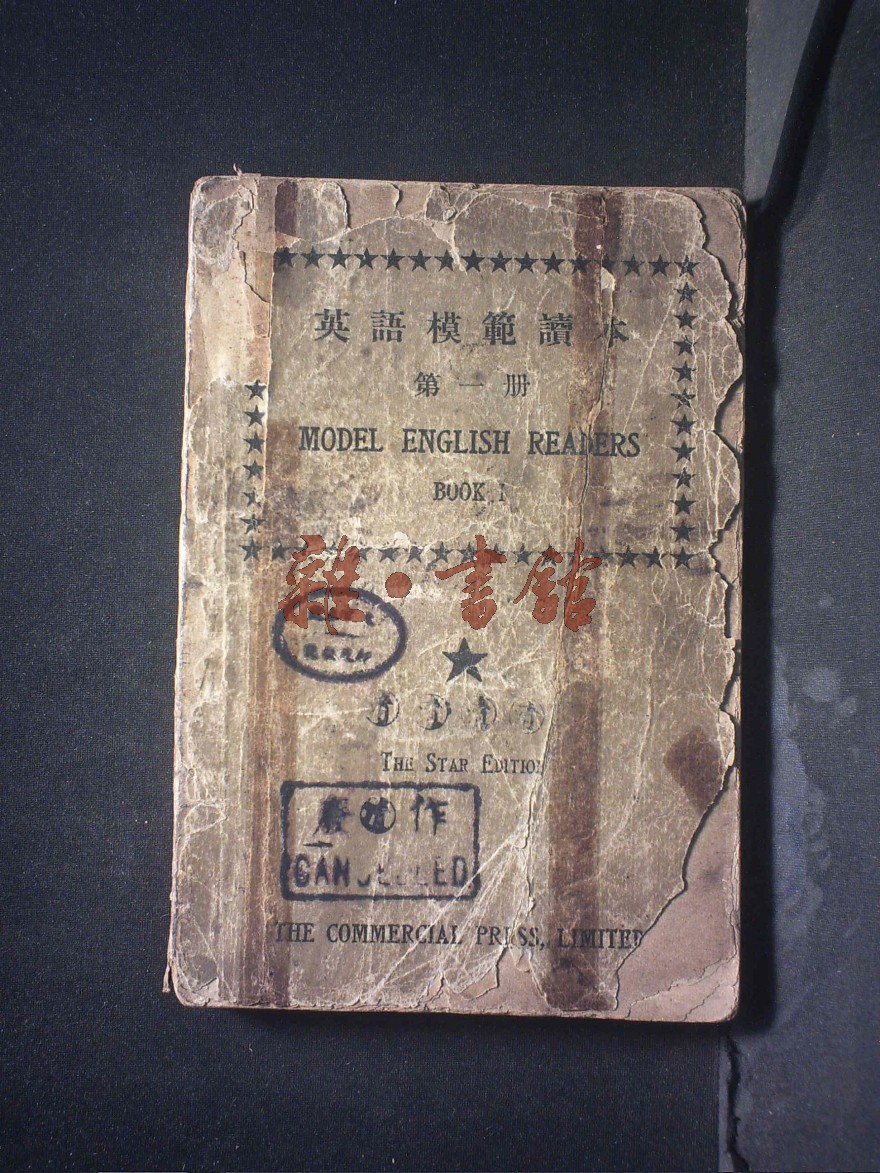 英語模範讀本
第一册
MODEL ENGLISH READERS
BOOK I
雜·書館
THE STAR EDITION
作
CANCELLED
THE COMMERCIAL PRESS, LIMITED